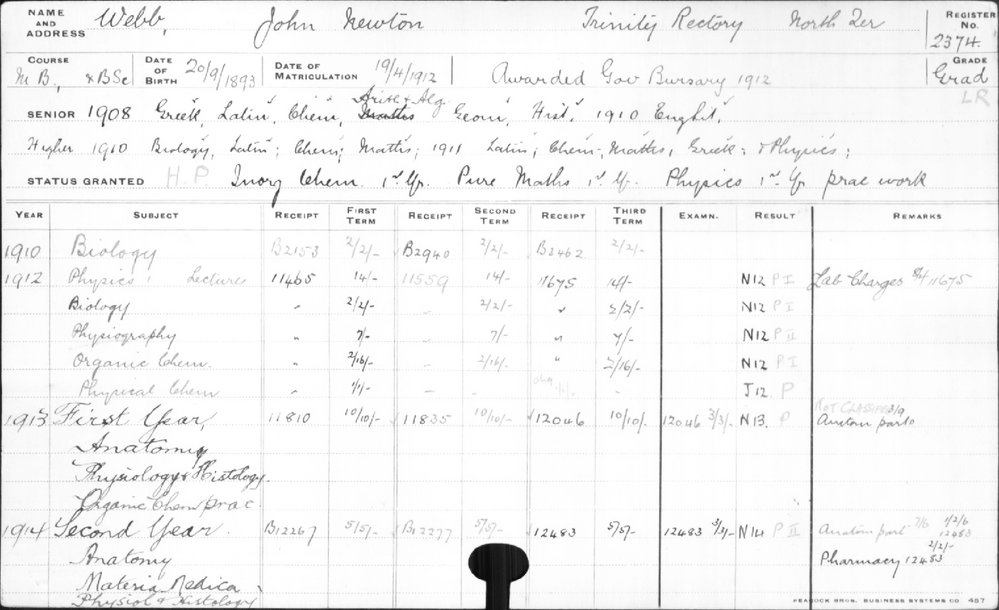 NAME AND ADDRESS Webb, John Newton Trinity Rectory North Ter REGISTER No. 2374.
COURSE M B, & BSc DATE OF BIRTH 20/9/1893 DATE OF MATRICULATION 19/4/1912 Awarded Gov Bursary 1912 GRADE Grad LR
Arith & Alg.
SENIOR 1908 Greek, Latin, Chem, Maths Geom, Hist, 1910 English,
Higher 1910 Biology, Latin; Chem; Maths; 1911 Latin; Chem; Maths; Greek; & Physics;
STATUS GRANTED H.P. Inorg Chem. 1st Yr. Pure Maths 1st Yr. Physics 1st Yr prac work
YEAR SUBJECT RECEIPT FIRST TERM RECEIPT SECOND TERM RECEIPT THIRD TERM EXAMN. RESULT REMARKS
1910 Biology B2153 2/2/- B2940 2/2/- B2462 2/2/-
1912 Physics 1 Lectures 11465 14/- 11559 14/- 11675 14/- N12 P I Lab Charges 8/4 11675
Biology " 2/2/- " 2/2/- " 2/2/- N12 P I
Physiography " 7/- " 7/- " 7/- N12 P II
Organic Chem. " 2/16/- " 2/16/- " 2/16/- N12 P I
Physical Chem " 1/1/- J12. P
NOT CLASSIFIED
1913 First Year, 11810 10/10/- 11835 10/10/- 12046 10/10/- 12046 3/3/- N13. P Anatom part
Anatomy
Physiology & Histology.
Organic Chem prac.
1914 Second Year. B12267 5/5/- B12277 5/5/- 12483 5/5/- 12483 3/3/- N14 P II Anatom part 7/6 1/2/6 12483
Anatomy Pharmacy 2/2/- 12483
Materia Medica
Physiol & Histology
PEACOCK BROS. BUSINESS SYSTEMS CO 487